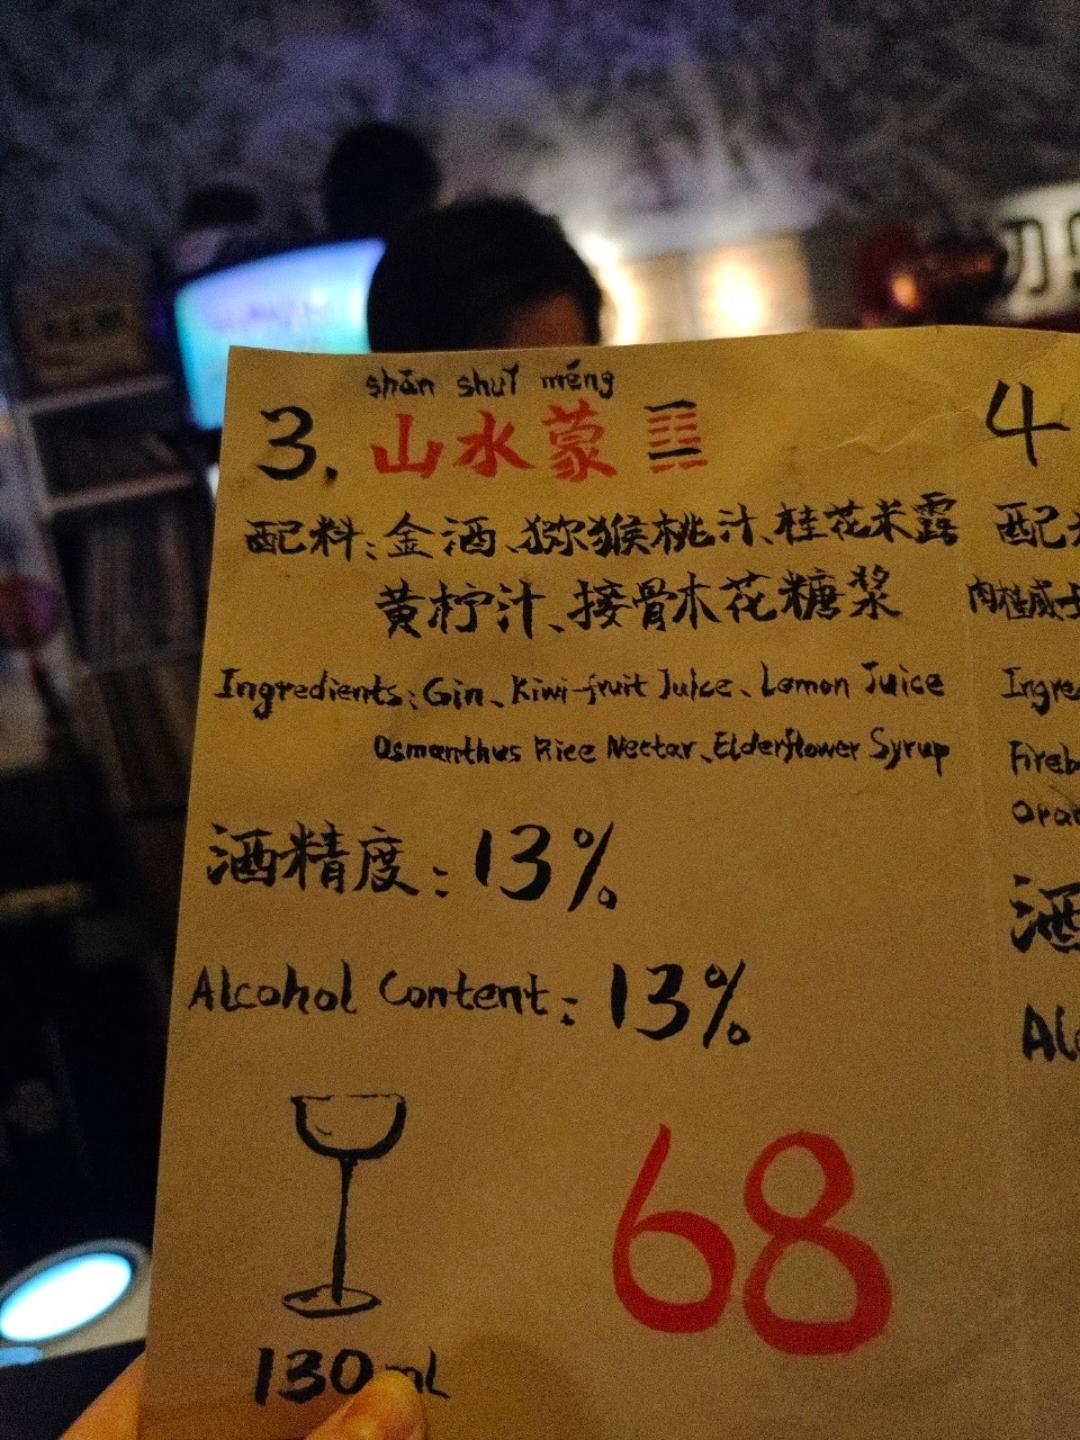 shān shuǐ méng
3. 山水蒙
配料:金酒、猕猴桃汁、桂花米露
黄柠汁、接骨木花糖浆
Ingredients: Gin、Kiwi-fruit Juice、Lemon Juice
Osmanthus Rice Nectar、Elderflower Syrup
酒精度:13%
Alcohol Content: 13%
68
130mL
4
配
肉桂威士
Ingre
Fireb
Oran
酒
Alc